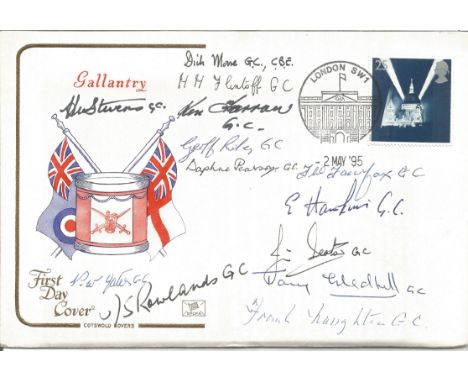 Gallantry
Dick Moore G.C., C.B.E.
H H Flintoff GC
LONDON SW1
25
Alex Sturns GC.
Ken Farrow
G.C.
Geoff Riley GC
2 MAY '95
Daphne Pearson GC.
Ted Fairfax GC
E Hawkins G.C.
Jim Beaton GC
P. W. Yates GC
J S Rowlands GC
Tony Gledhill GC
Frank Naughton G.C.
First
Day
Cover
COTSWOLD COVERS